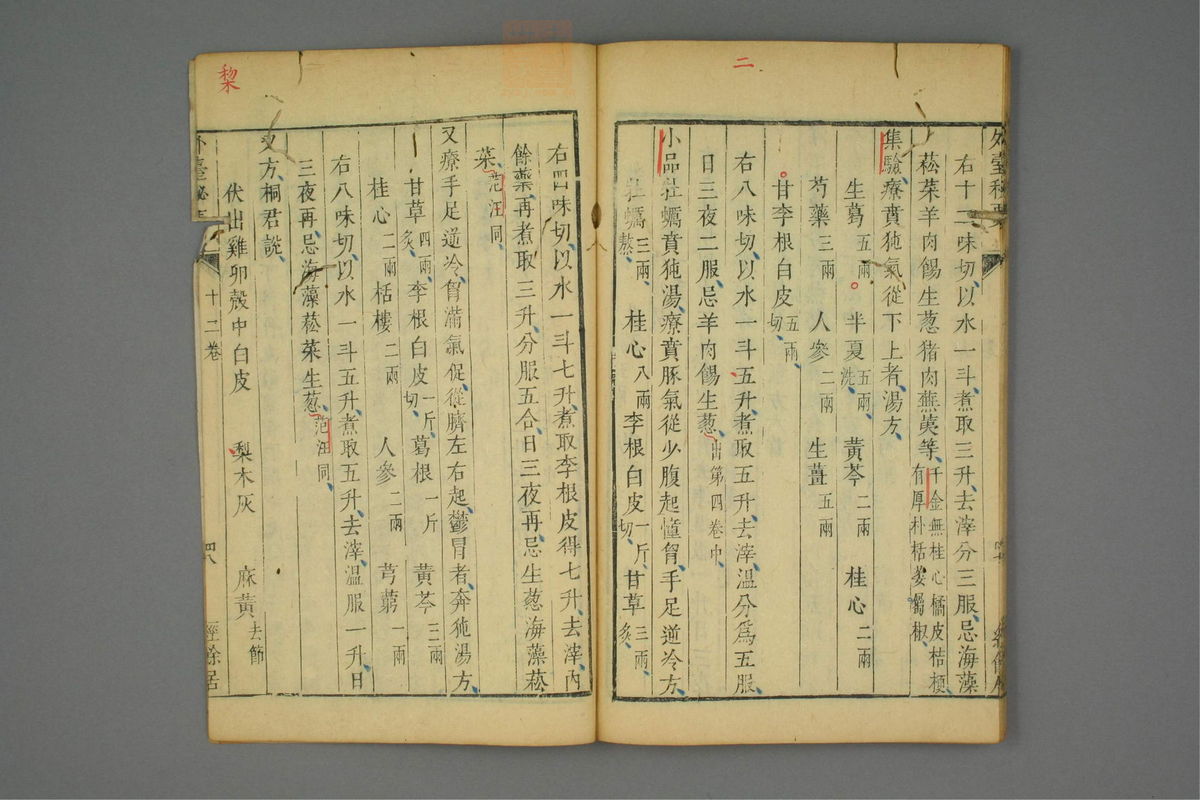 二
外臺秘要
右十二味切以水一斗煮取三升去滓分三服忌海藻
菘菜羊肉餳生葱猪肉蕪荑等千金無桂心橘皮桔梗有厚朴栝蔞蜀椒
集驗療賁㹠氣從下上者湯方
生葛五兩 半夏五兩洗 黃芩二兩 桂心二兩
芍藥三兩 人參二兩 生薑五兩
甘李根白皮五兩切
右八味切以水一斗五升煮取五升去滓溫分爲五服
日三夜二服忌羊肉餳生葱出第四卷中
小品牡蠣賁㹠湯療賁豚氣從少腹起憧胷手足逆冷方
牡蠣三兩熬 桂心八兩 李根白皮一斤切 甘草三兩炙
右四味切以水一斗七升煮取李根皮得七升去滓內
餘藥再煮取三升分服五合日三夜再忌生葱海藻菘
菜范汪同
又療手足逆冷胷滿氣促從臍左右起鬱冒者奔㹠湯方
甘草四兩炙 李根白皮一斤切 葛根一斤 黃芩三兩
桂心二兩 栝樓二兩 人參二兩 芎藭一兩
右八味切以水一斗五升煮取五升去滓溫服一升日
三夜再忌海藻菘菜生葱范汪同
又方桐君說
伏出雞卵殼中白皮 梨木灰 麻黃去節
外臺秘要 十二卷 四八 經餘居
梨